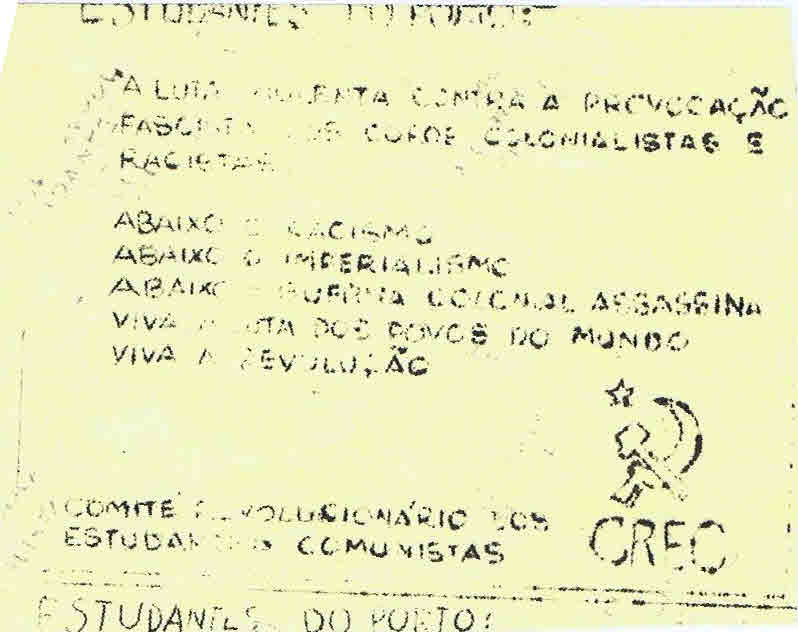 ESTUDANTES DO PORTO:
A LUTA VIOLENTA CONTRA A PROVOCAÇÃO
FASCISTA DOS COLONIALISTAS E
RACISTAS
ABAIXO O RACISMO
ABAIXO O IMPERIALISMO
ABAIXO A GUERRA COLONIAL ASSASSINA
VIVA A LUTA DOS POVOS DO MUNDO
VIVA A REVOLUÇÃO
COMITÉ REVOLUCIONÁRIO DOS
ESTUDANTES COMUNISTAS
CREC
ESTUDANTES DO PORTO: